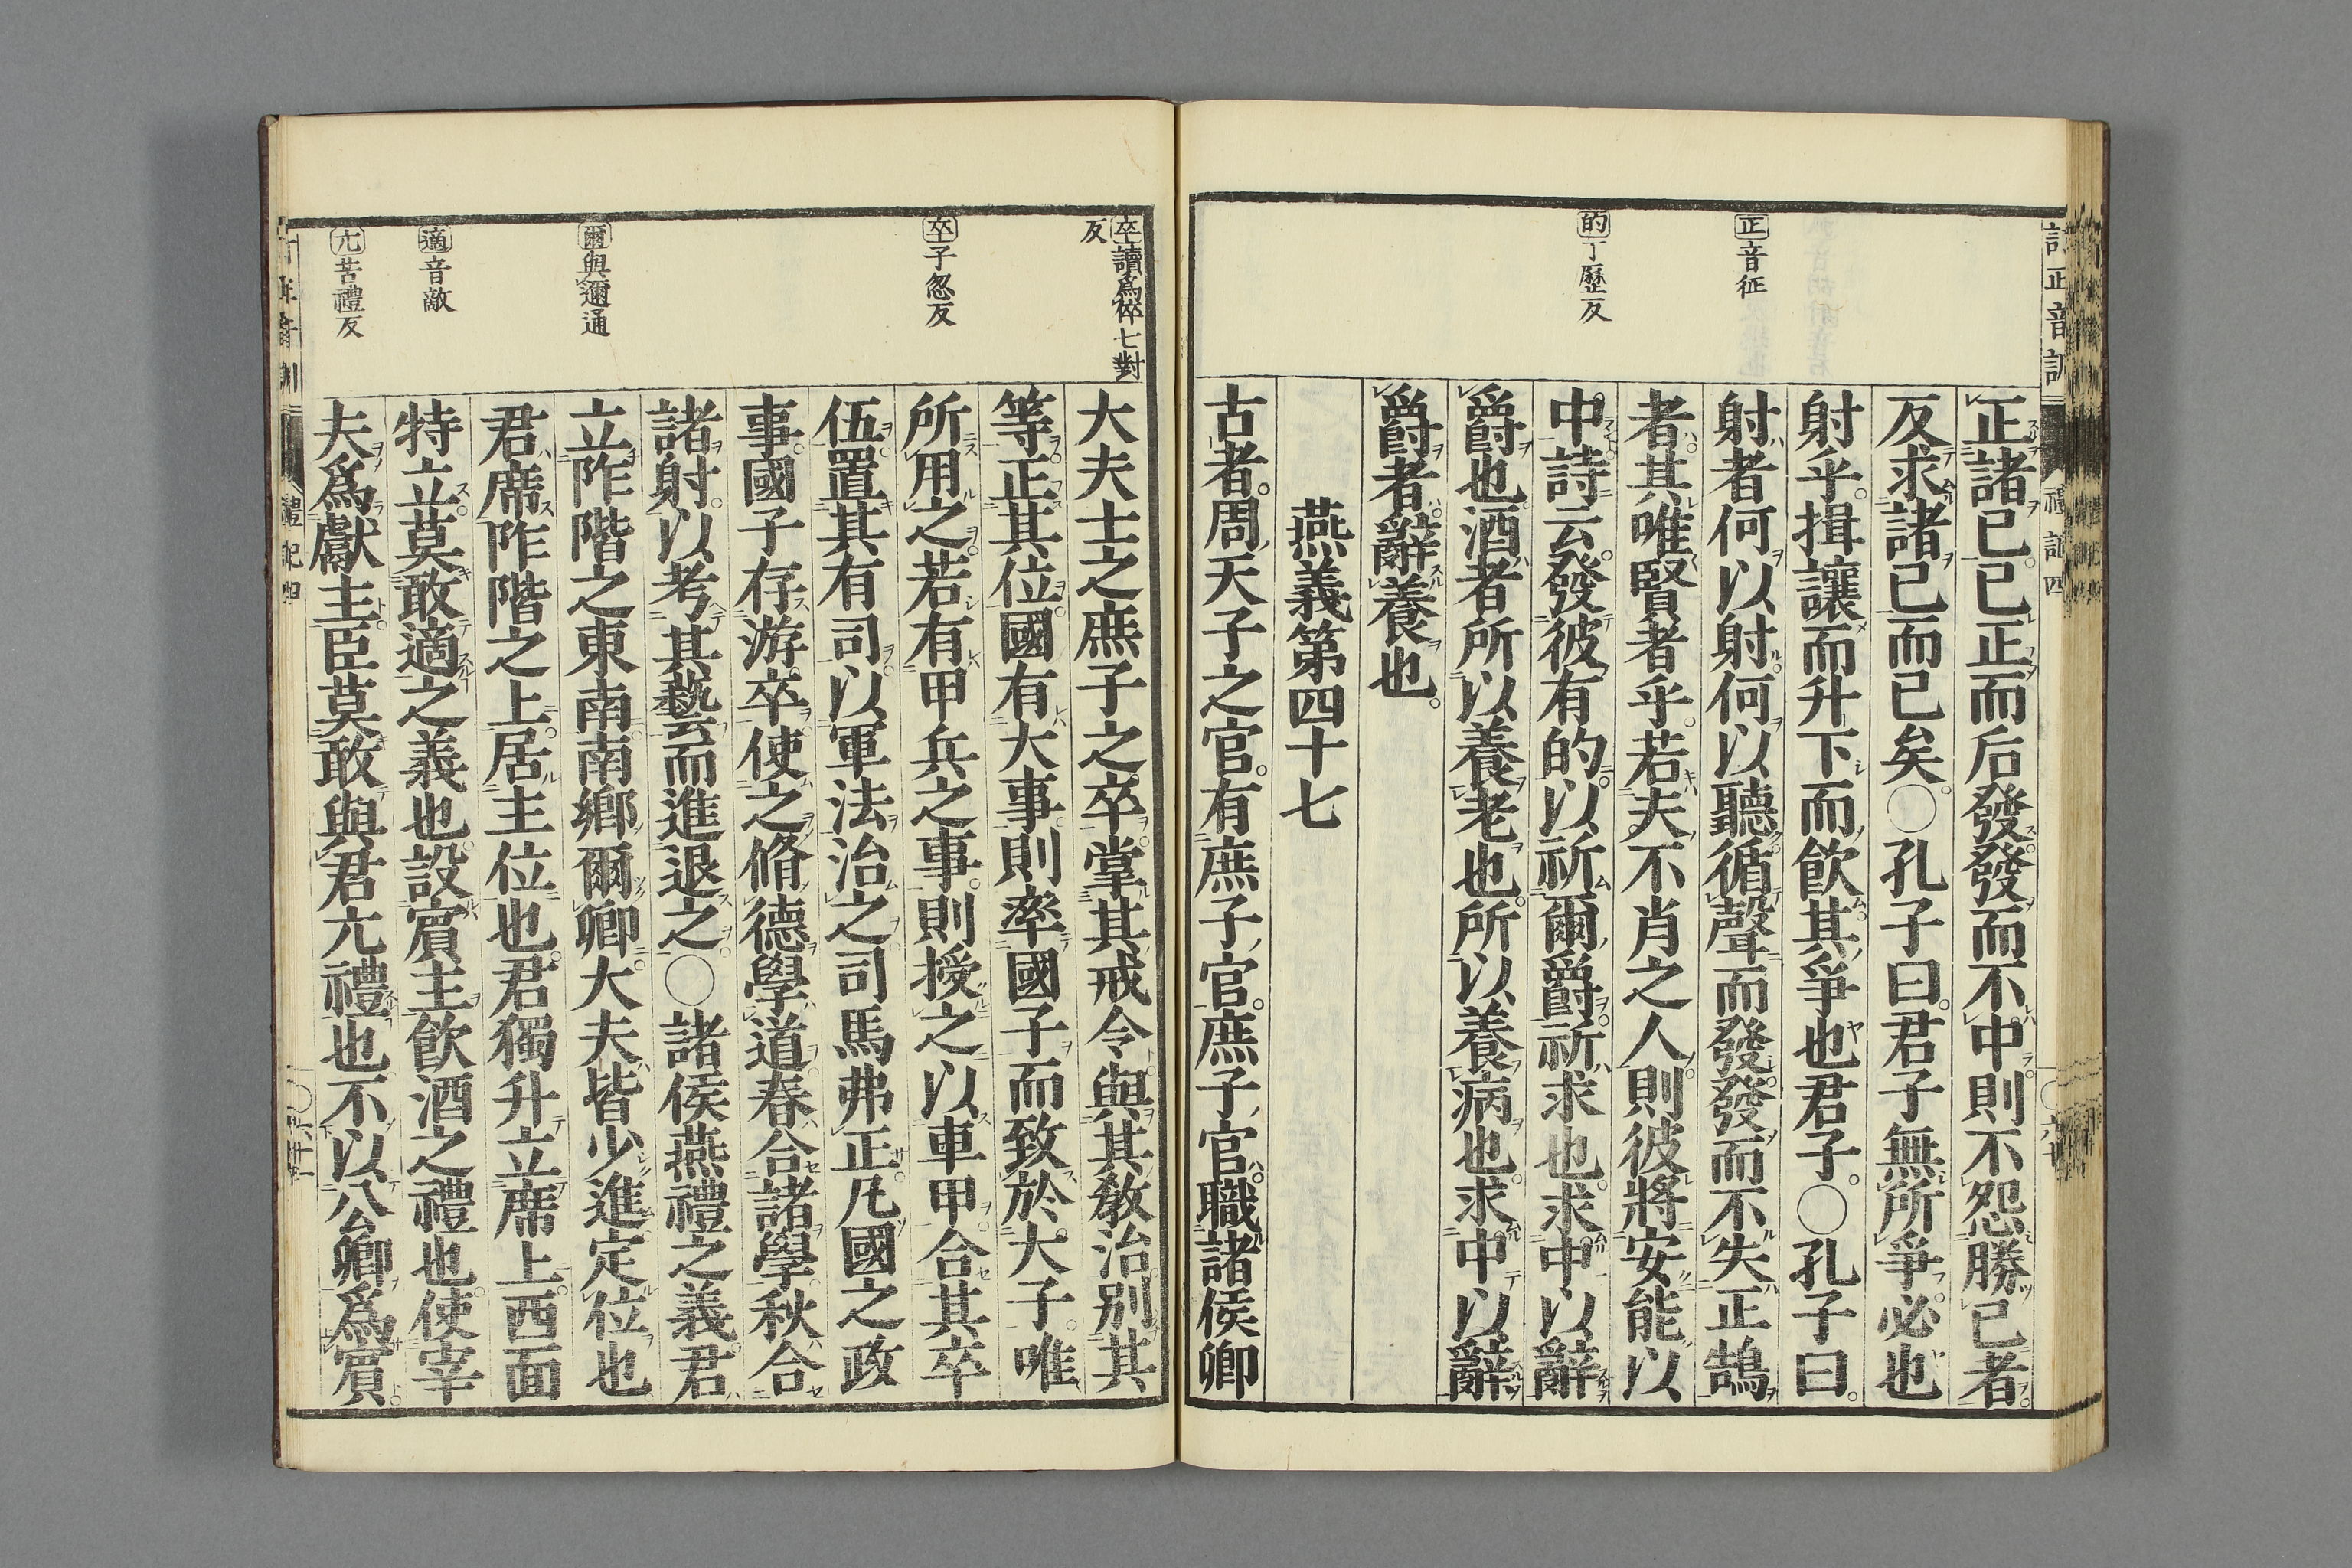 正音征
的丁歷反
正諸已已正而后發發而不中則不怨勝已者
反求諸已而已矣○孔子曰君子無所爭必也
射乎揖讓而升下而飮其爭也君子○孔子曰
射者何以射何以聽循聲而發發而不失正鵠
者其唯賢者乎若夫不肖之人則彼將安能以
中詩云發彼有的以祈爾爵祈求也求中以辭
爵也酒者所以養老也所以養病也求中以辭
爵者辭養也
燕義第四十七
古者周天子之官有庶子官庶子官職諸侯卿
卒讀爲倅七對
反
卒子忽反
爾與邇通
適音敵
亢苦禮反
大夫士之庶子之卒掌其戒令與其敎治別其
等正其位國有大事則率國子而致於大子唯
所用之若有甲兵之事則授之以車甲合其卒
伍置其有司以軍法治之司馬弗正凡國之政
事國子存游卒使之脩德學道春合諸學秋合
諸射以考其藝而進退之○諸侯燕禮之義君
立阼階之東南南鄉爾卿大夫皆少進定位也
君席阼階之上居主位也君獨升立席上西面
特立莫敢適之義也設賓主飮酒之禮也使宰
夫爲獻主臣莫敢與君亢禮也不以公卿爲賓
禮記四